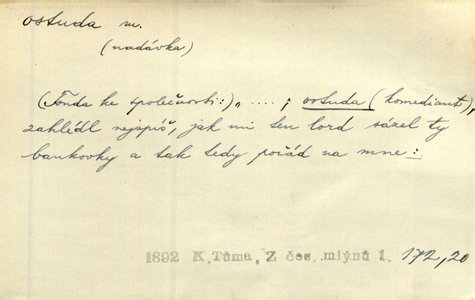 ostuda m.
(nadávka)
(Tonda ke společnosti:) „ .... ; ostuda (komediant),
zahlédl nejspíš, jak mi ten lord sázel ty
bankovky a tak tedy pořád na mne :
1892 K. Tůma, Z čes. mlýnů 1. 172,20